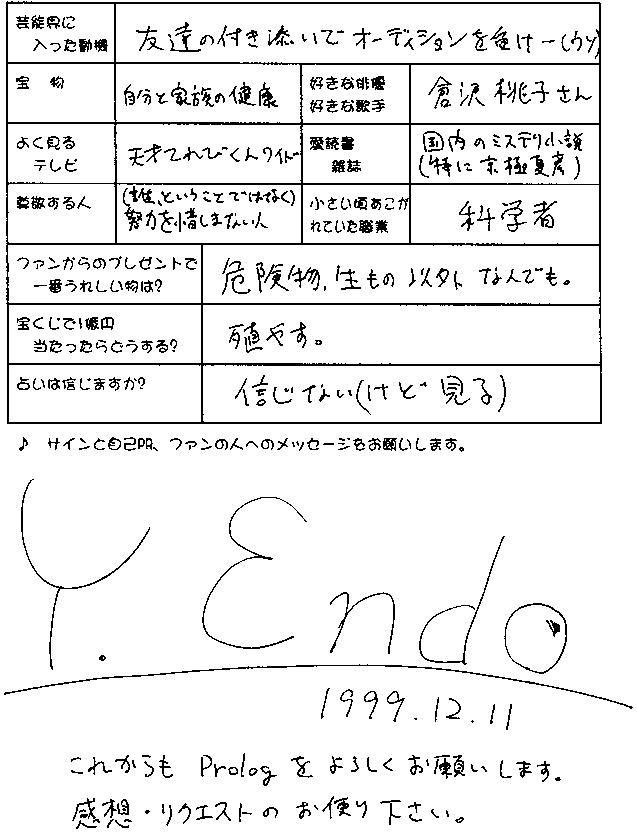 芸能界に
入った動機
友達の付き添いでオーディションを受け―(ウソ)
宝 物
自分と家族の健康
好きな俳優
好きな歌手
倉沢桃子さん
よく見る
テレビ
天才てれびくんワイド
愛読書
雑誌
国内のミステリ小説
(特に京極夏彦)
尊敬する人
(誰、ということではなく)
努力を惜しまない人
小さい頃あこが
れていた職業
科学者
ファンからのプレゼントで
一番うれしい物は?
危険物、生もの以外なんでも。
宝くじで1億円
当たったらどうする?
殖やす。
占いは信じますか?
信じない(けど見る)
♪ サインと自己PR、ファンの人へのメッセージをお願いします。
Y. Endo
1999.12.11
これからも Prolog をよろしくお願いします。
感想・リクエストのお便り下さい。